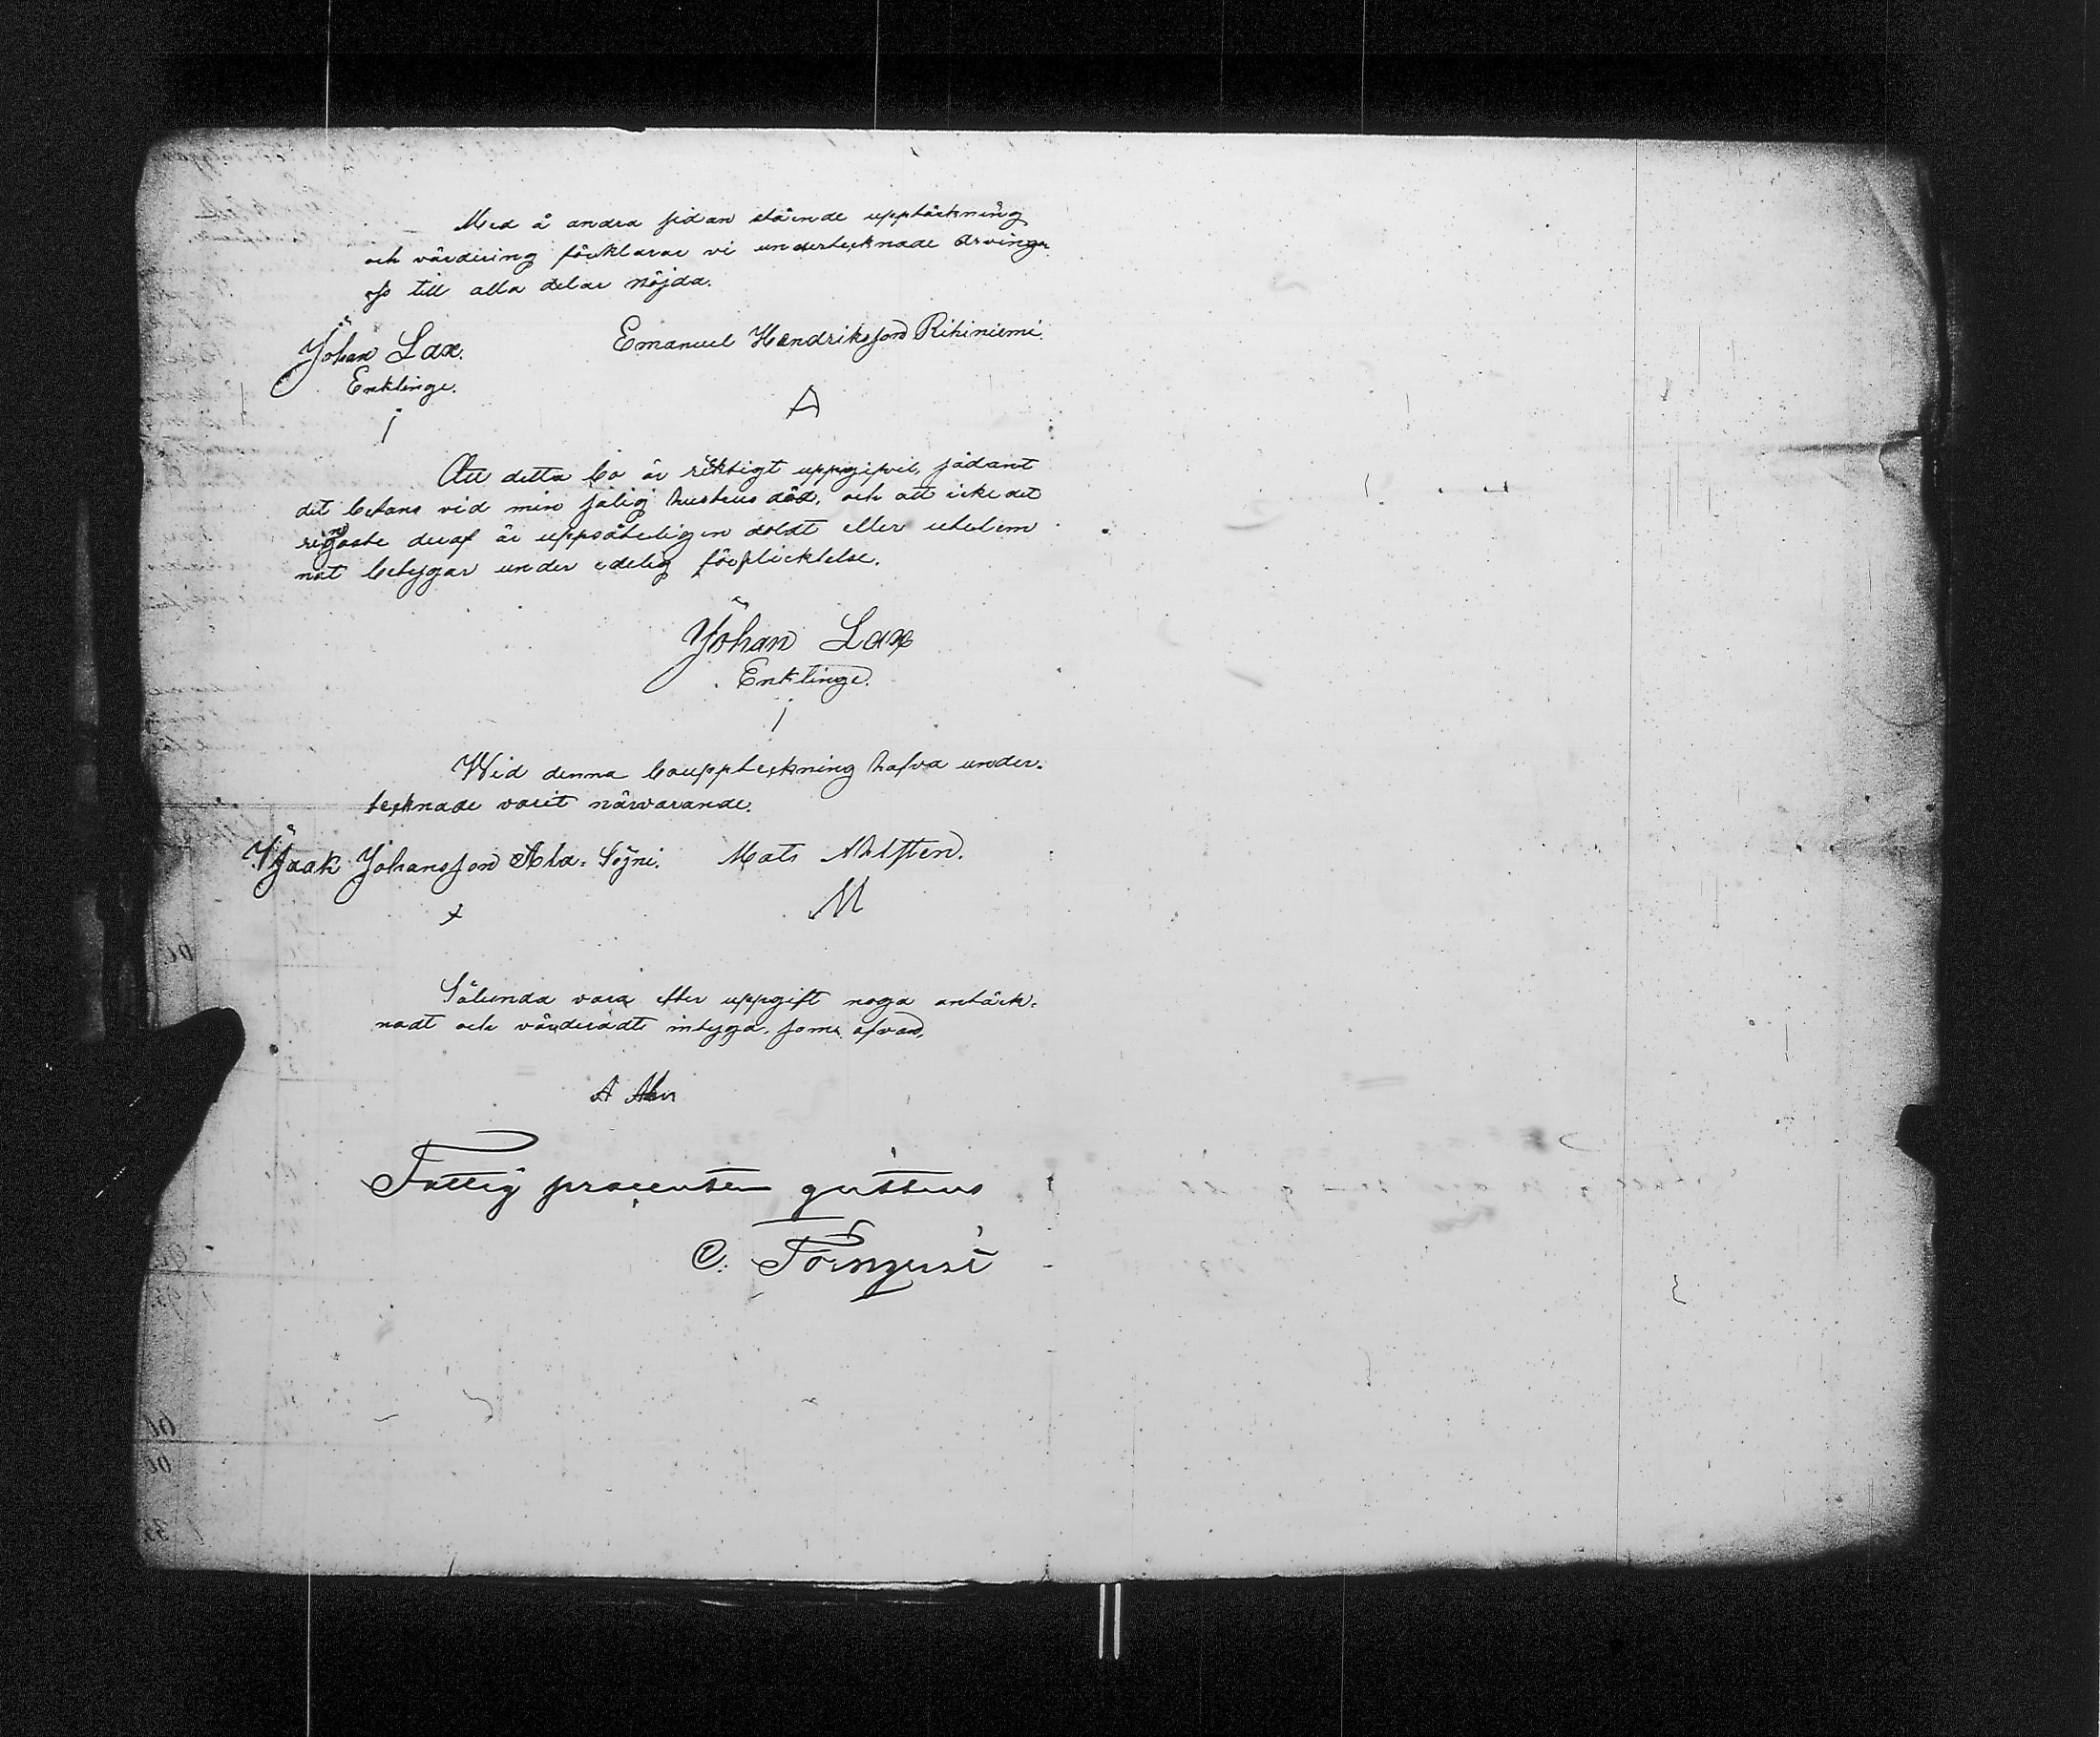 Med å andra sidan stående upptäckning
och värdering förklarar vi undertecknade arvingar
oss till alla delar nöjda.
Johan Lax. Emanuel Hendriksson Rihiniemi.
Enklinge.
A
Att detta bo är riktigt uppgifvit, sådant
det befans vid min salig hustrus död, och att icke det
ringaste deraf är uppsåteligen doldt eller utelem
nat betygar under edelig förplicktelse.
Johan Lax
Enklinge.
Wid denna bouppteckning hafva under-
tecknade varit närvarande.
Isaak Johansson Ala-Seyni. Mats Ahlsten.
x M
Sålunda vara efter uppgift noga antäck-
nadt och värderadt intyga, som ofvan,
A
Fattig procenten
C.